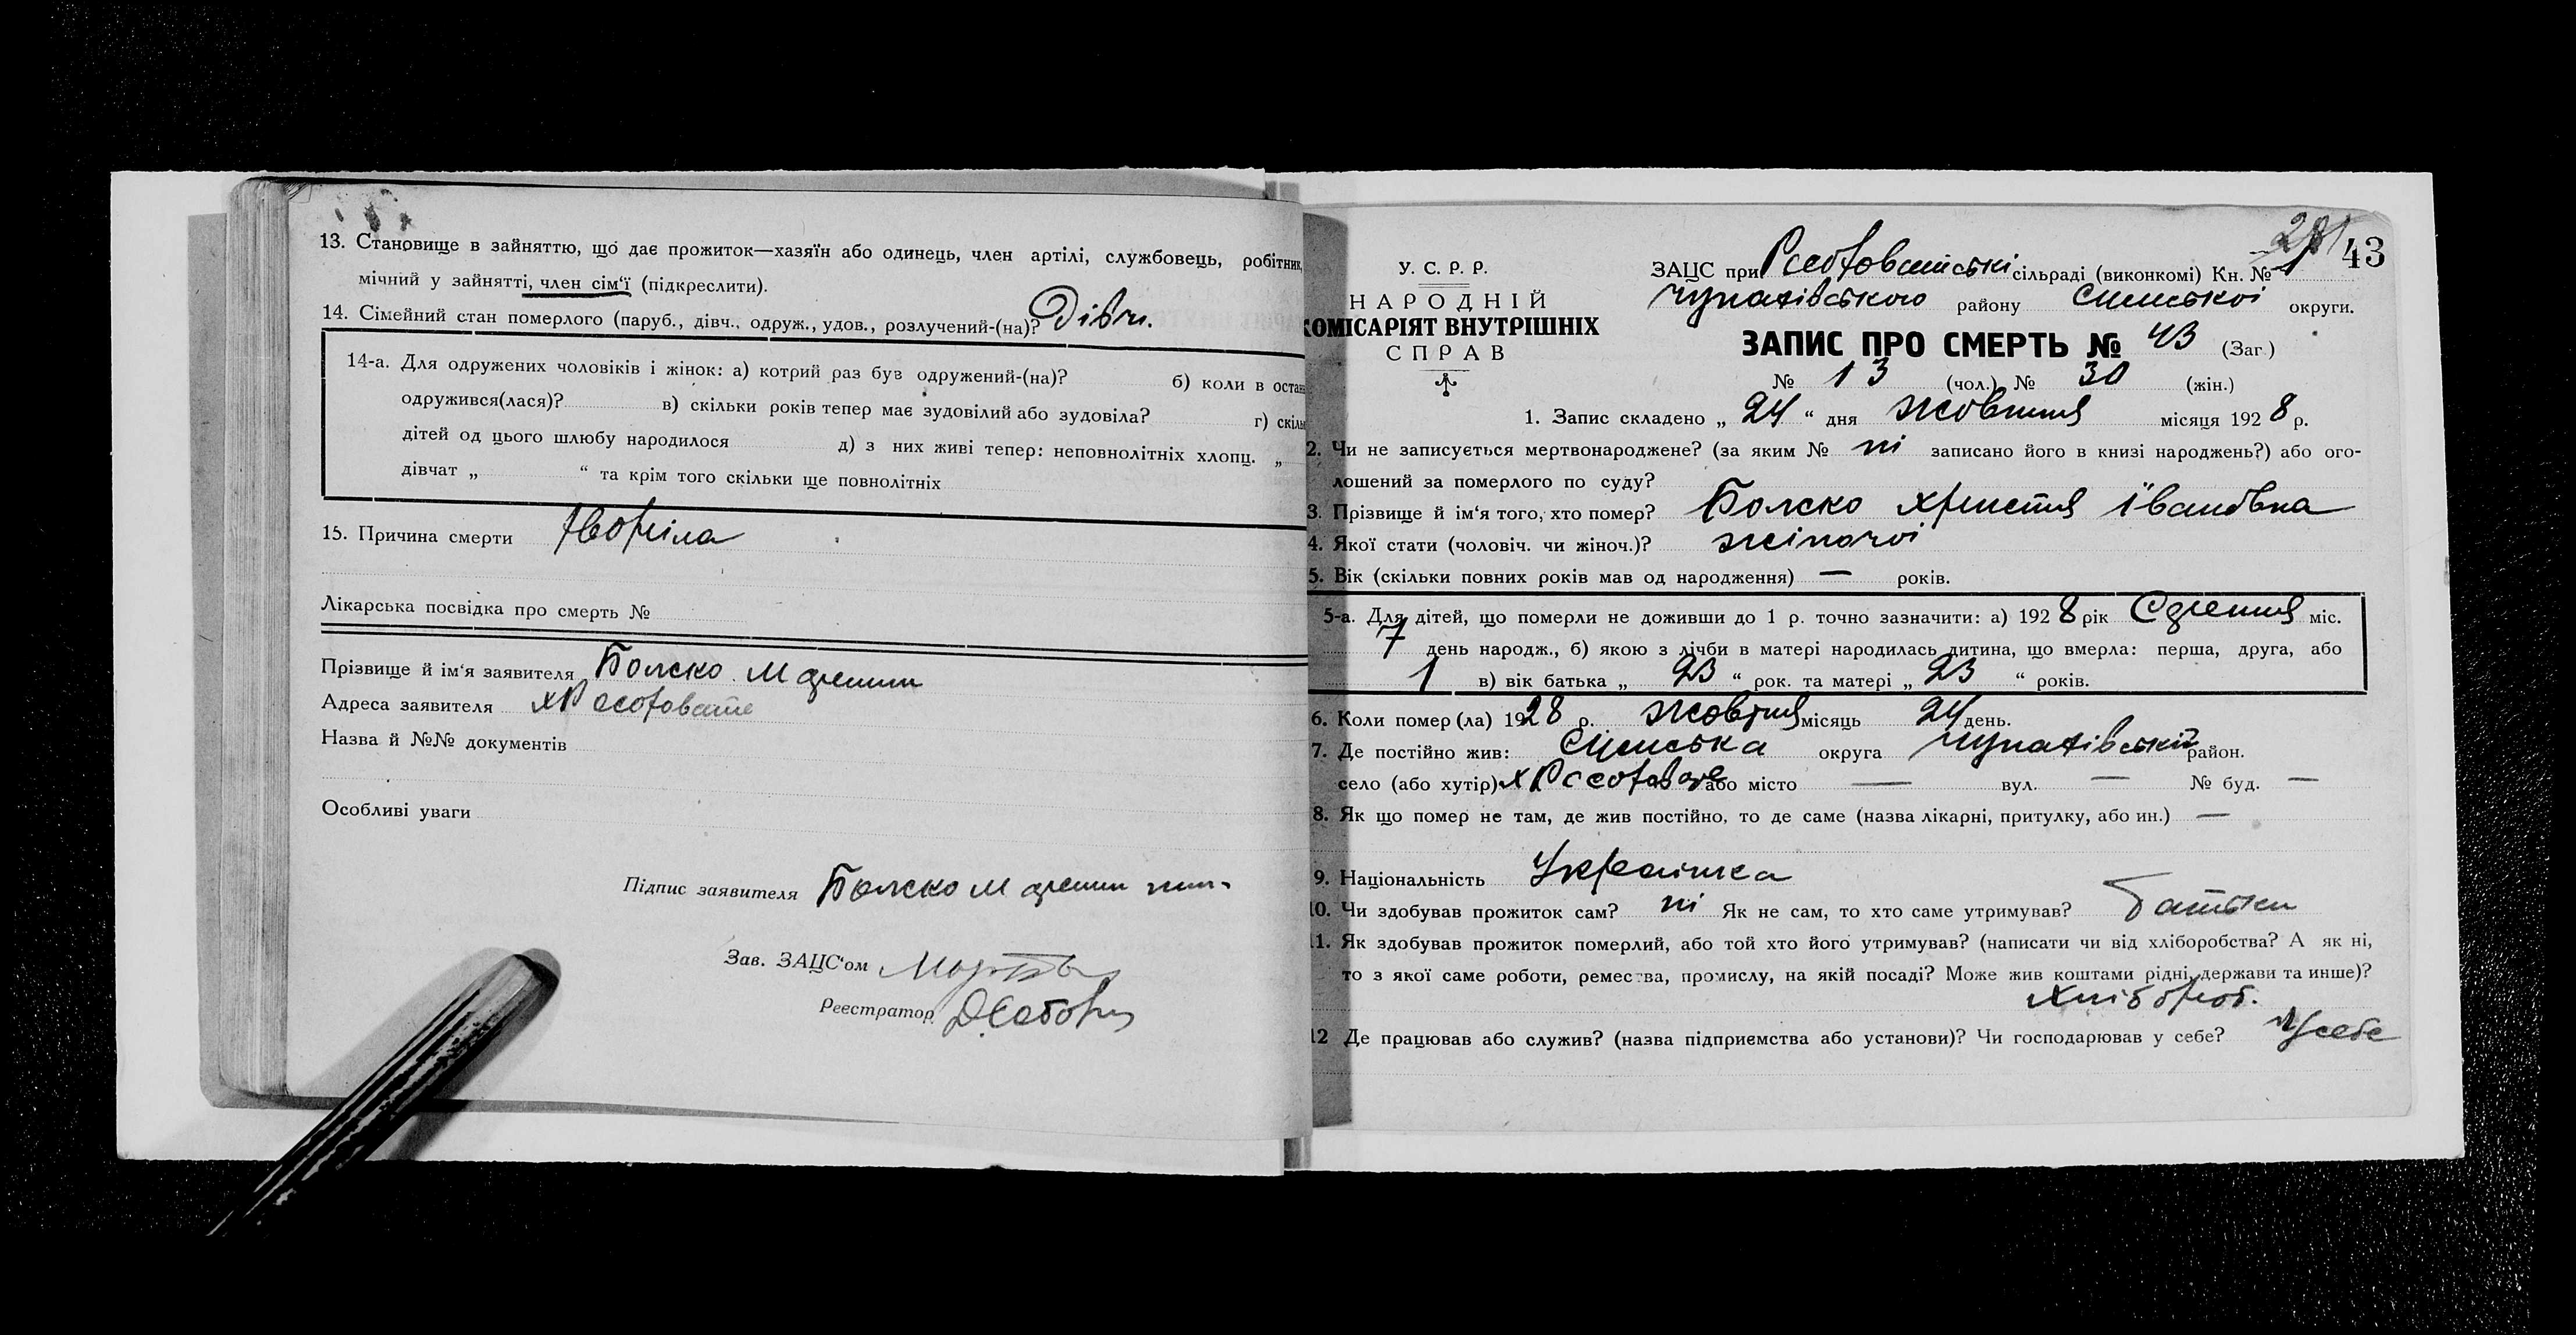 13. Становище в зайняттю, що дає прожиток—хазяїн або одинець, член артілі, службовець, робітник,
мічний у зайнятті, член сім'ї (підкреслити).
14. Сімейний стан померлого (паруб., дівч., одруж., удов., розлучений-(на)? Дівч.
14-а. Для одружених чоловіків і жінок: а) котрий раз був одружений-(на)? б) коли в остан
одружився(лася)? в) скільки років тепер має зудовілий або зудовіла? г) скіль
дітей од цього шлюбу народилося д) з них живі тепер: неповнолітніх хлопц. „
дівчат „ “ та крім того скільки ще повнолітніх
15. Причина смерти хворіла
Лікарська посвідка про смерть №
Прізвище й ім'я заявителя
Адреса заявителя
Назва й №№ документів
Особливі уваги
Підпис заявителя
Зав. ЗАЦС'ом
Реєстратор
43
У. С. Р. Р.
НАРОДНІЙ
КОМІСАРІЯТ ВНУТРІШНІХ
СПРАВ
ЗАЦС при сільраді (виконкомі) Кн. № 1
району округи.
ЗАПИС ПРО СМЕРТЬ № 43 (Заг.)
№ 13 (чол.) № 30 (жін.)
1. Запис складено „ 24 “ дня жовтня місяця 1928 р.
2. Чи не записується мертвонароджене? (за яким № ні записано його в книзі народжень?) або ого-
лошений за померлого по суду?
3. Прізвище й ім'я того, хто помер? Христя Івановна
4. Якої стати (чоловіч. чи жіноч.)? жіночої
5. Вік (скільки повних років мав од народження) — років.
5-а. Для дітей, що померли не доживши до 1 р. точно зазначити: а) 1928 рік Січня міс.
7 день народж., б) якою з лічби в матері народилась дитина, що вмерла: перша, друга, або
1 в) вік батька „ 23 “ рок. та матері „ 23 “ років.
6. Коли помер (ла) 1928 р. жовтня місяць 24 день.
7. Де постійно жив: округа район.
село (або хутір) або місто — вул. — № буд. —
8. Як що помер не там, де жив постійно, то де саме (назва лікарні, притулку, або ин.) —
9. Національність Українка
10. Чи здобував прожиток сам? ні Як не сам, то хто саме утримував? батьки
11. Як здобував прожиток померлий, або той хто його утримував? (написати чи від хліборобства? А як ні,
то з якої саме роботи, ремества, промислу, на якій посаді? Може жив коштами рідні, держави та инше)?
хлібороб.
12 Де працював або служив? (назва підприємства або установи)? Чи господарював у себе? У себе